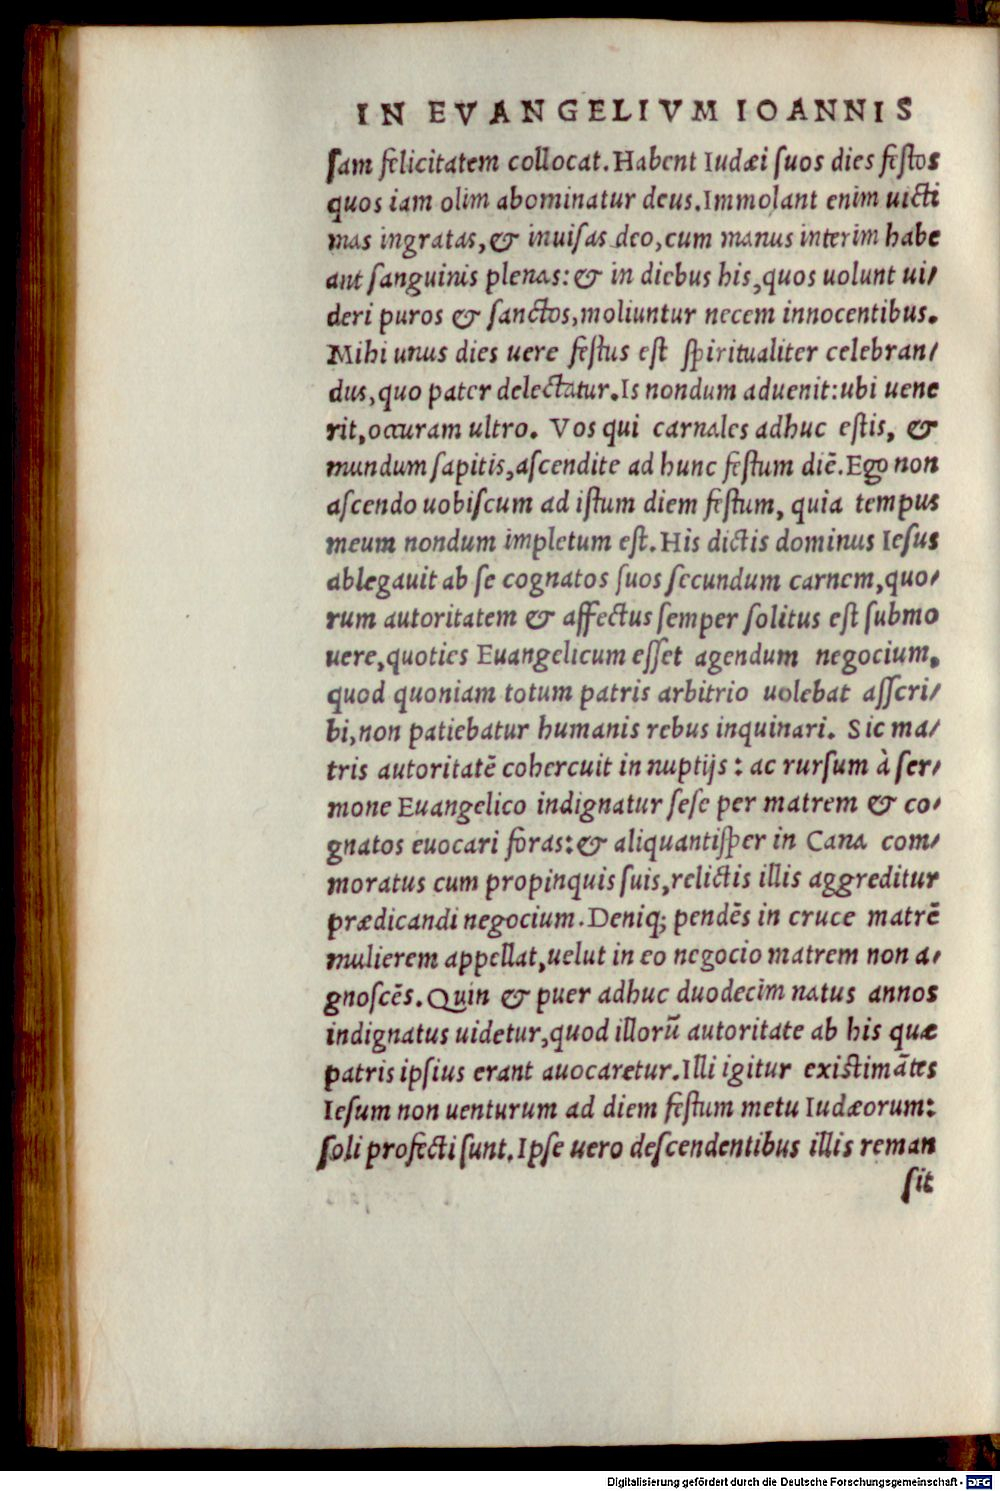 IN EVANGELIVM IOANNIS
sam felicitatem collocat. Habent Iudæi suos dies festos
quos iam olim abominatur deus. Immolant enim uicti
mas ingratas, & inuisas deo, cum manus interim habe
ant sanguinis plenas: & in diebus his, quos uolunt ui/
deri puros & sanctos, moliuntur necem innocentibus.
Mihi unus dies uere festus est spiritualiter celebran/
dus, quo pater delectatur. Is nondum aduenit: ubi uene
rit, occuram ultro. Vos qui carnales adhuc estis, &
mundum sapitis, ascendite ad hunc festum diē. Ego non
ascendo uobiscum ad istum diem festum, quia tempus
meum nondum impletum est. His dictis dominus Iesus
ablegauit ab se cognatos suos secundum carnem, quo/
rum autoritatem & affectus semper solitus est submo
uere, quoties Euangelicum esset agendum negocium,
quod quoniam totum patris arbitrio uolebat asscri/
bi, non patiebatur humanis rebus inquinari. Sic ma/
tris autoritatē cohercuit in nuptijs: ac rursum à ser/
mone Euangelico indignatur sese per matrem & co/
gnatos euocari foras: & aliquantisper in Cana com/
moratus cum propinquis suis, relictis illis aggreditur
prædicandi negocium. Deniq; pendēs in cruce matrē
mulierem appellat, uelut in eo negocio matrem non a/
gnoscēs. Quin & puer adhuc duodecim natus annos
indignatus uidetur, quod illorū autoritate ab his quæ
patris ipsius erant auocaretur. Illi igitur existimātes
Iesum non uenturum ad diem festum metu Iudæorum:
soli profecti sunt. Ipse uero descendentibus illis reman
sit
Digitalisierung gefördert durch die Deutsche Forschungsgemeinschaft - DFG